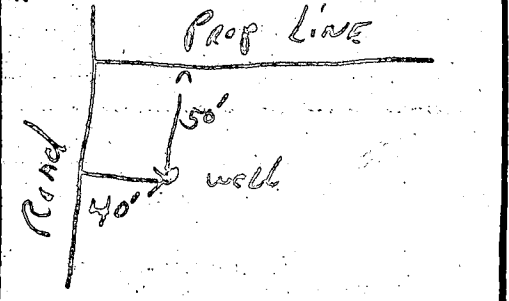 Prop Line
50'
Road
40'
well